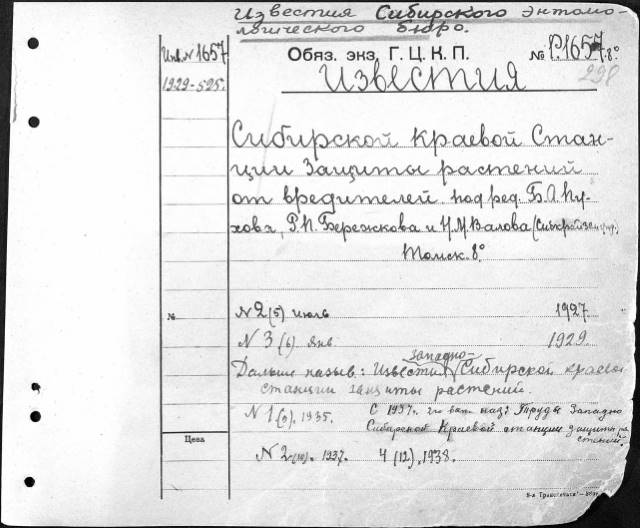 Известия Сибирского Энтомо-
логического бюро.
Инв. № 1657
1929-525.
Обяз. экз. Г. Ц. К. П.
№ Р.1657/8°
298
Известия
Сибирской Краевой Стан-
ции Защиты растений
от вредителей. под ред.
Р. П. Бережкова и Н. М. Валова
Томск. 8°
№
№ 2 (5) июль 1927
№ 3 (6) янв 1929
западно-
Дальше назыв.: Известия Сибирской краевой
станции защиты растений.
№ 1 (9). 1935. С 1937. наз: Труды Западно
Сибирской Краевой станции защиты ра
стений.
Цена
№ 2 (10). 1937. 4 (12). 1938.